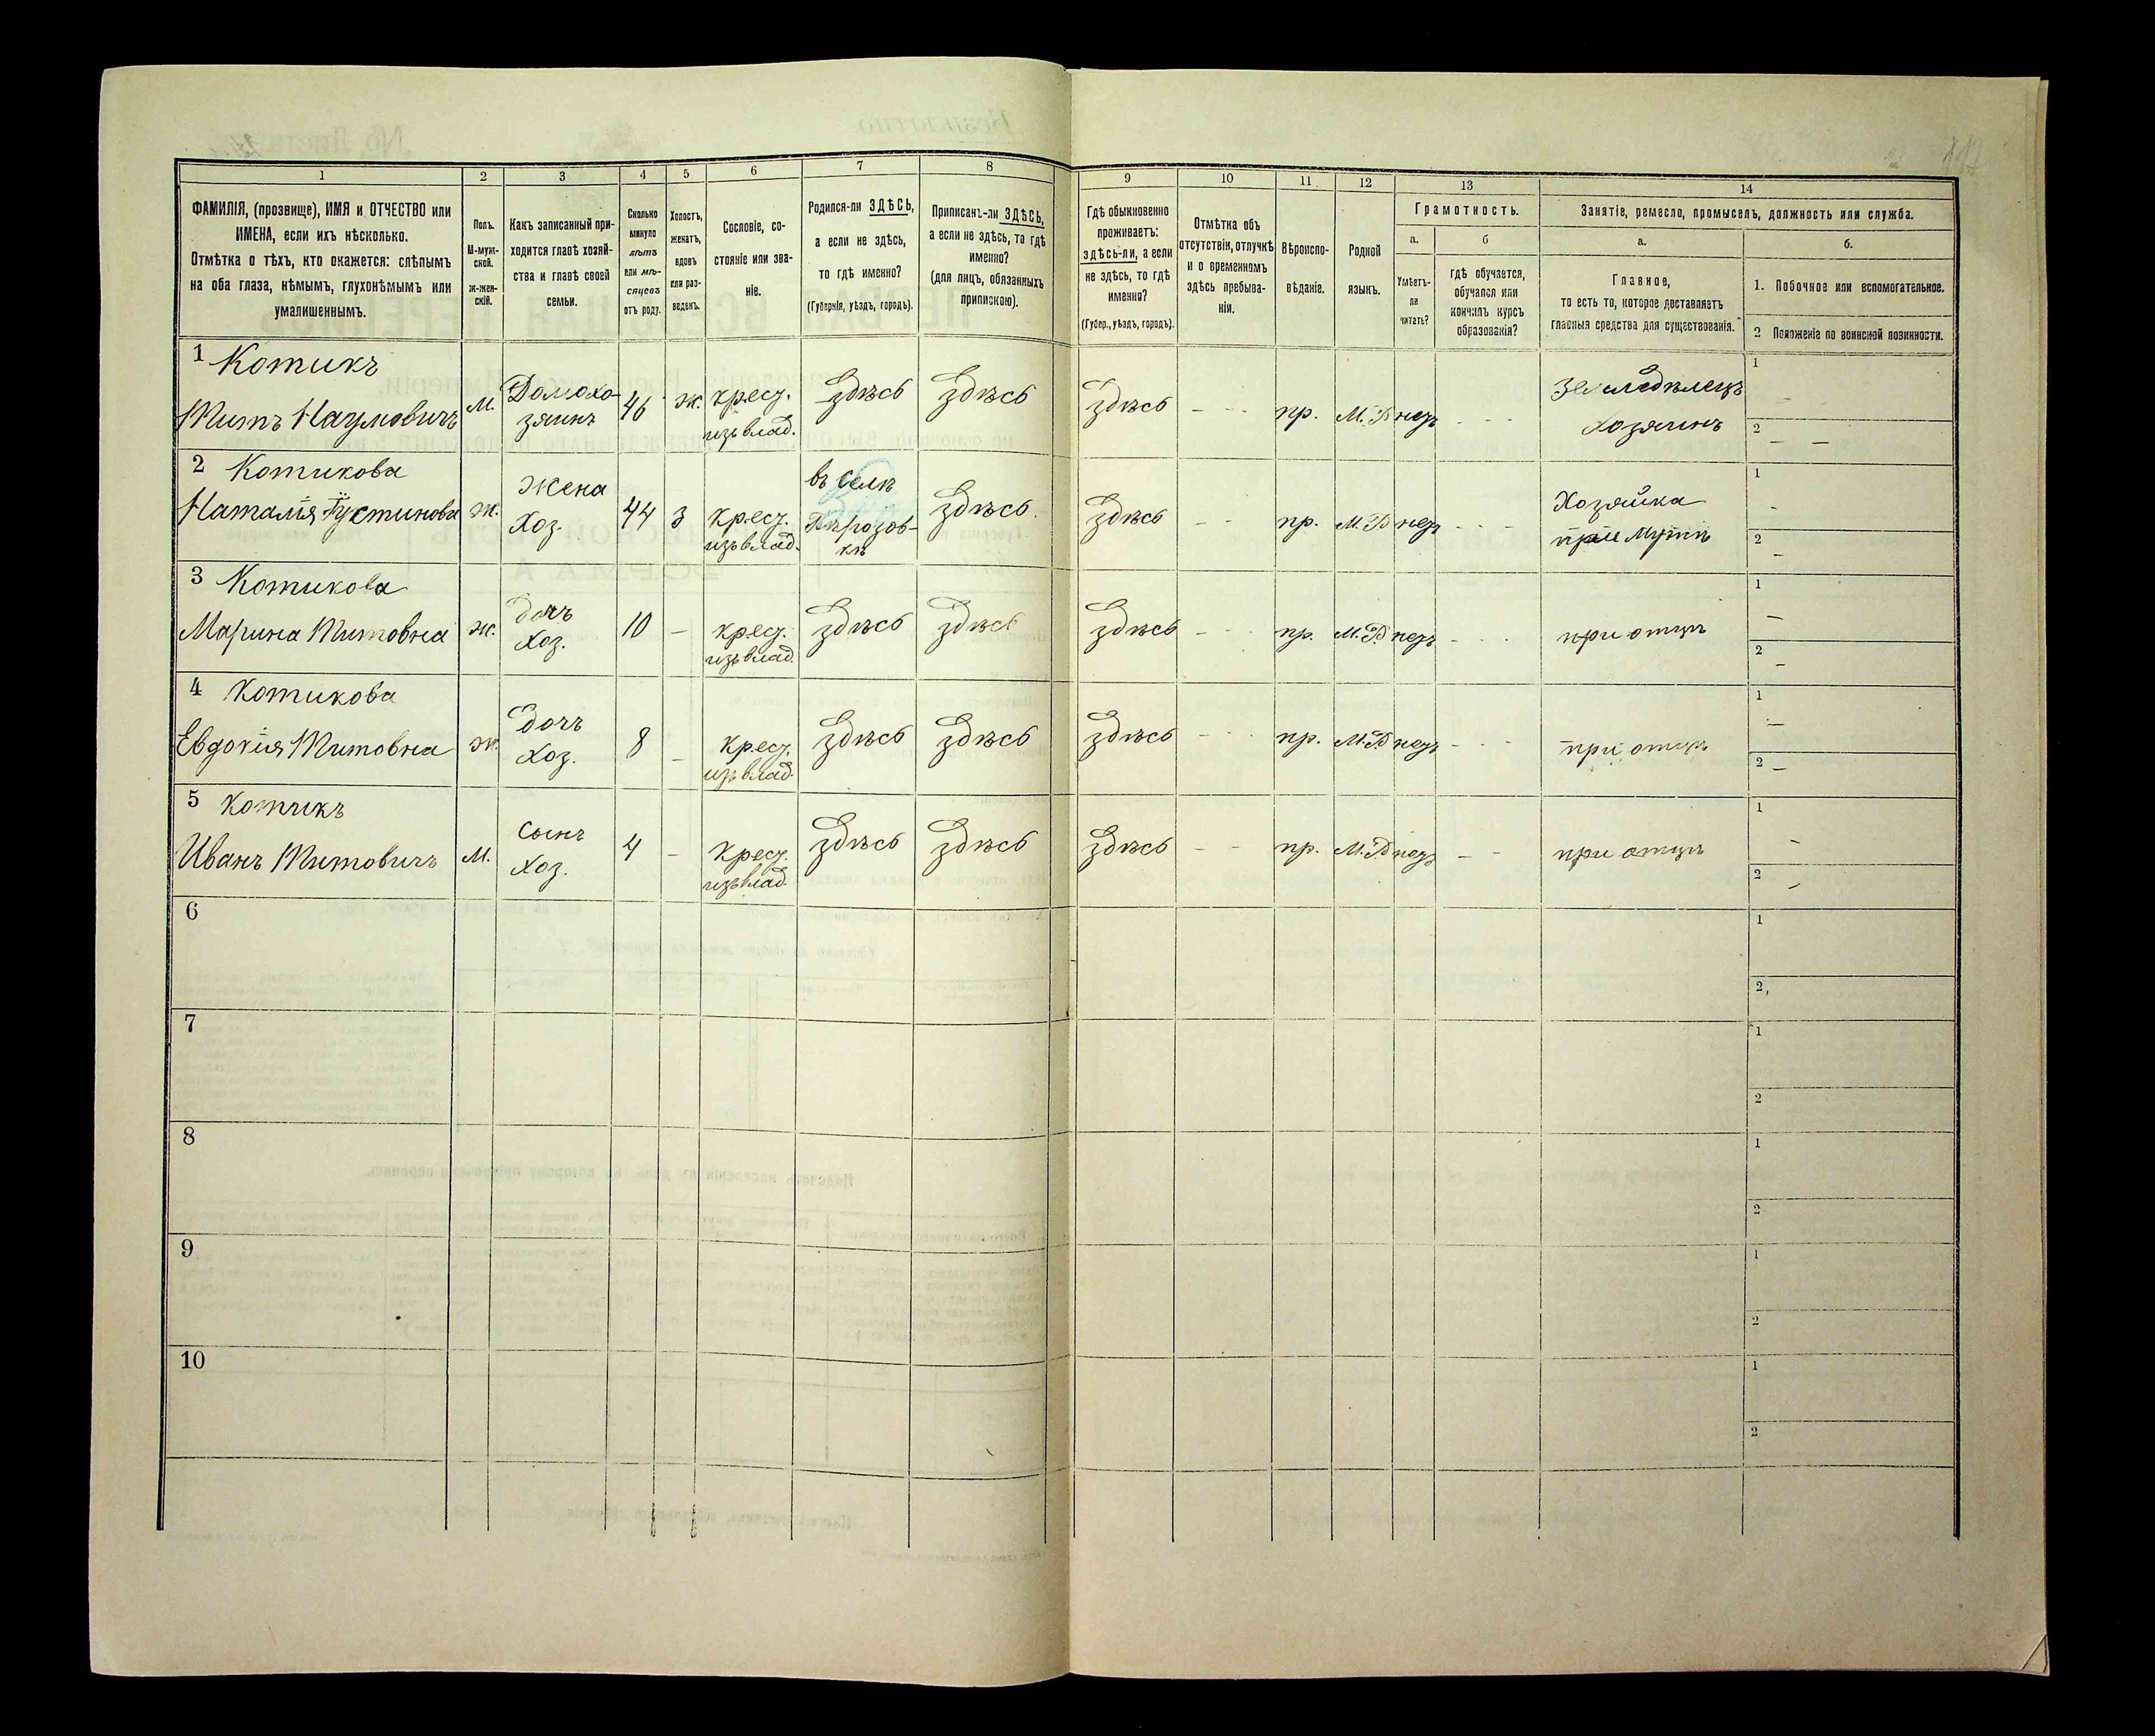 1 2 3 4 5 6 7 8 9 10 11 12 13 14
ФАМИЛІЯ, (прозвище), ИМЯ и ОТЧЕСТВО или
ИМЕНА, если ихъ нѣсколько.
Отмѣтка о тѣхъ, кто окажется: слѣпымъ
на оба глаза, нѣмымъ, глухонѣмымъ или
умалишеннымъ.
Полъ.
М-муж-
ской.
Ж-жен-
скій.
Какъ записанный при-
ходится главѣ хозяй-
ства и главѣ своей
семьи.
Сколько
минуло
лѣтъ
или мѣ-
сяцевъ
отъ роду.
Холостъ,
женатъ,
вдовъ
или раз-
веденъ.
Сословіе, со-
стояніе или зва-
ніе.
Родился-ли ЗДѢСЬ,
а если не здѣсь,
то гдѣ именно?
(Губернія, уѣздъ, городъ).
Приписанъ-ли ЗДѢСЬ,
а если не здѣсь, то гдѣ
именно?
(для лицъ, обязанныхъ
припискою).
Гдѣ обыкновенно
проживаетъ:
здѣсь-ли, а если
не здѣсь, то гдѣ
именно?
(Губер., уѣздъ, городъ).
Отмѣтка объ
отсутствіи, отлучкѣ
и о временномъ
здѣсь пребыва-
ніи.
Вѣроиспо-
вѣданіе.
Родной
языкъ.
Грамотность.
а.
Умѣетъ-
ли
читать?
б
гдѣ обучается,
обучался или
кончилъ курсъ
образованія?
Занятіе, ремесло, промыселъ, должность или служба.
а.
Главное,
то есть то, которое доставляетъ
главныя средства для существованія.
б.
1. Побочное или вспомогательное.
2 Положеніе по воинской повинности.
1 Котикъ
Титъ Наумовичъ
М.
Домохо-
зяинъ
46
Ж.
крест.
изъ влад.
Здѣсь
Здѣсь
Здѣсь
- - -
пр.
М.Р
нетъ
- - -
Земледѣлецъ
Хозяинъ
1
2
2 Котикова
Наталія Густинова
Ж.
Жена
Хоз.
44
З
крест.
изъ влад.
въ селѣ
здѣсь.
здѣсь
- -
пр.
М.Р
нетъ
- - -
Хозяйка
при мужѣ
1
2
3 Котикова
Марина Титовна
Ж.
дочь
Хоз.
10
-
крест.
изъ влад.
Здѣсь
Здѣсь
Здѣсь
- - -
пр.
М.Р
нетъ
- - -
при отцѣ
1
2
4 Котикова
Евдокія Титовна
Ж.
дочь
Хоз.
8
-
крест.
изъ влад.
Здѣсь
Здѣсь
Здѣсь
- - -
пр.
М.Р
нетъ
- - -
при отцѣ
1
2
5 Котикъ
Иванъ Титовичъ
М.
сынъ
Хоз.
4
-
крест.
изъ влад.
Здѣсь
Здѣсь
Здѣсь
- -
пр.
М.Р
нетъ
- -
при отцѣ
1
2
6
1
2
7
1
2
8
1
2
9
1
2
10
1
2